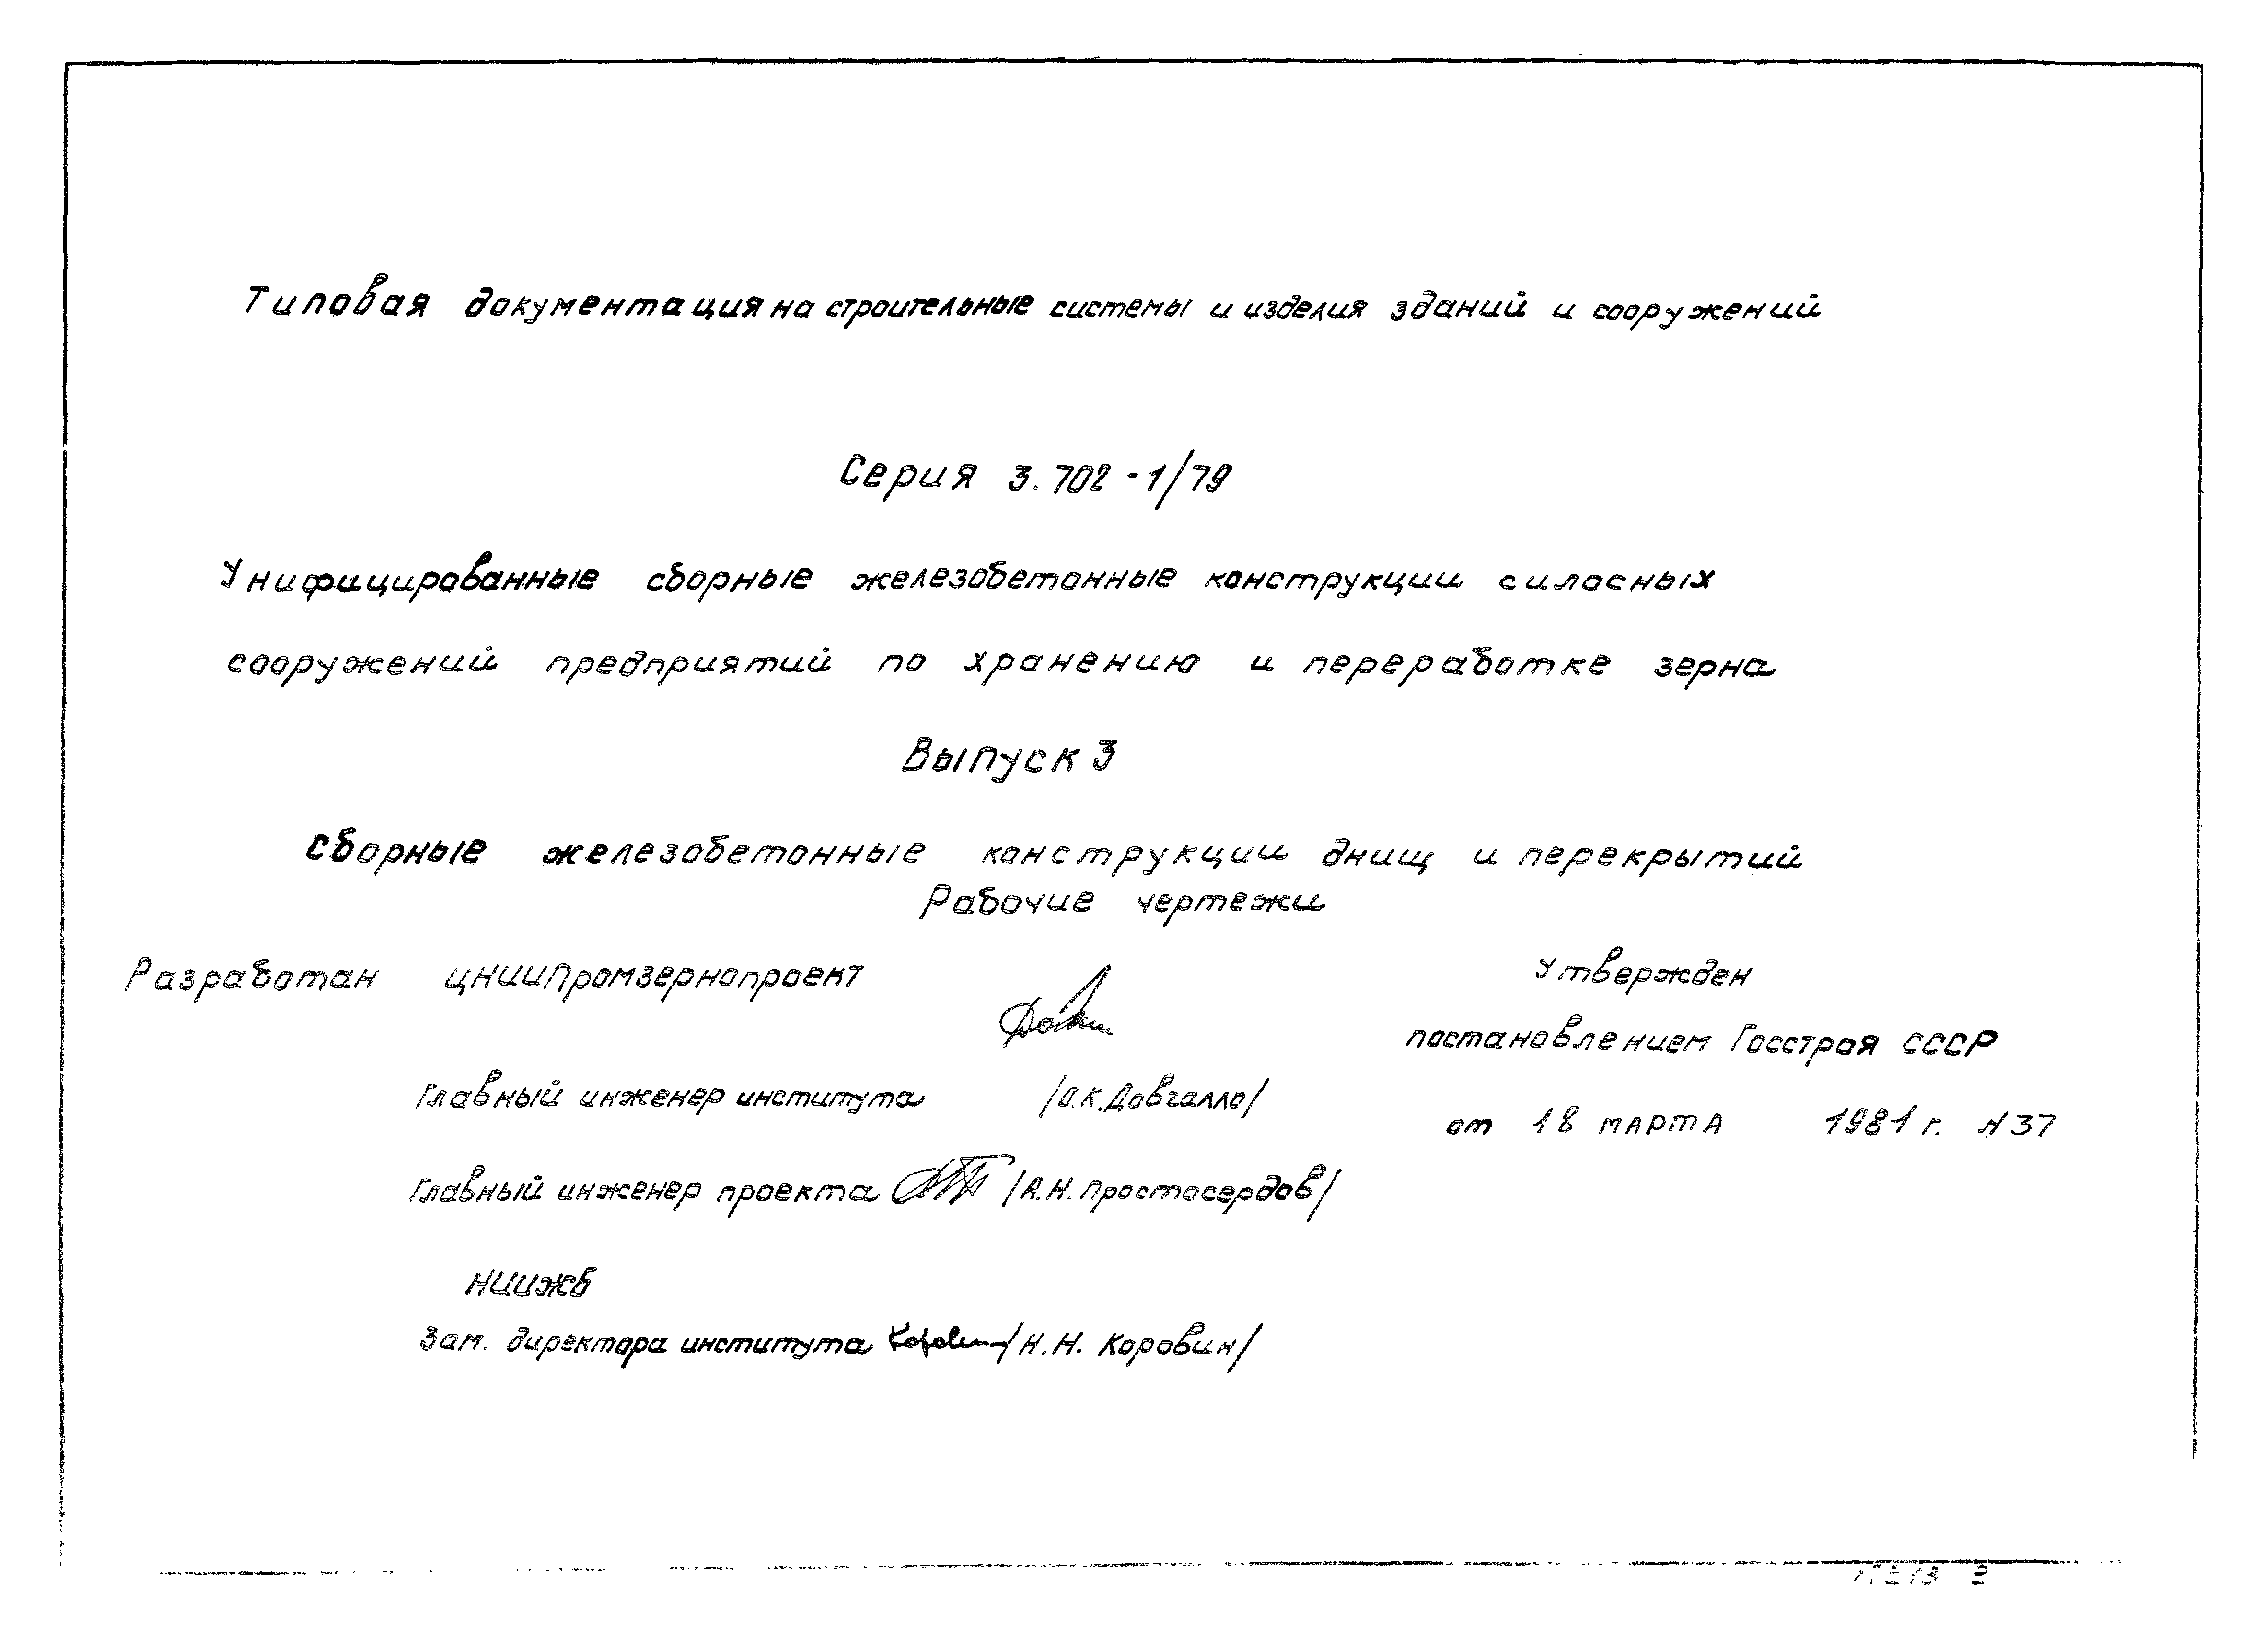 Типовая документация на строительные системы и изделия зданий и сооружений
Серия 3.702-1/79
Унифицированные сборные железобетонные конструкции силосных
сооружений предприятий по хранению и переработке зерна
Выпуск 3
Сборные железобетонные конструкции днищ и перекрытий
Рабочие чертежи
Разработан ЦНИИПромзернопроект
Главный инженер института /О.К. Довгалло/
Главный инженер проекта /А.Н. Простосердов/
НИИЖБ
Зам. директора института /Н.Н. Коровин/
Утвержден
постановлением Госстроя СССР
от 18 марта 1981 г. N 37
2